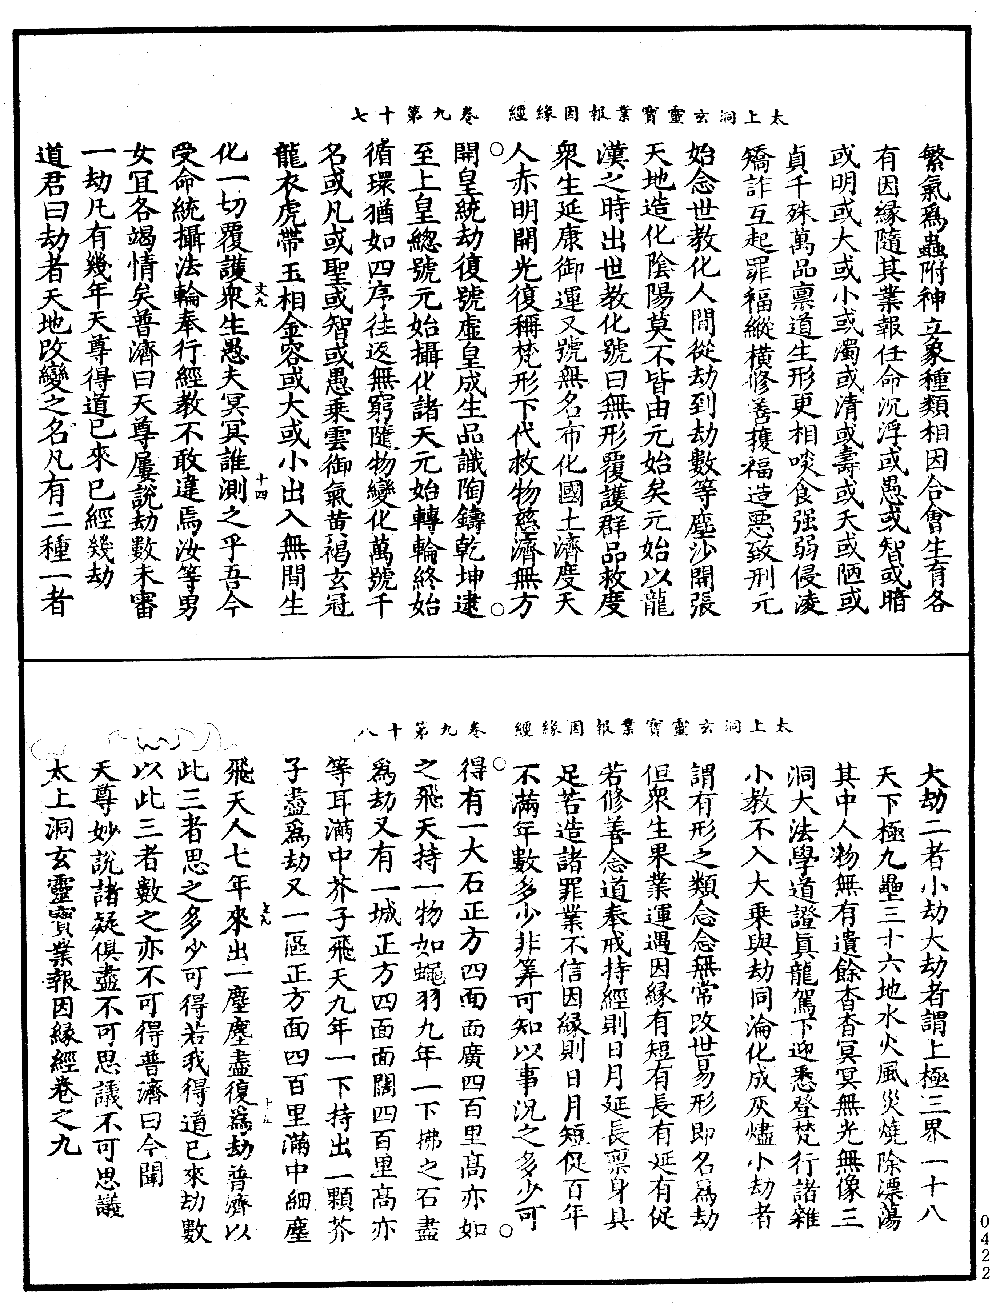 太上洞玄靈寶業報因緣經　卷九第十七
繁氣爲蟲附神立象種類相因合會生育各
有因緣隨其業報任命沉浮或愚或智或暗
或明或大或小或濁或清或壽或夭或陋或
貞千殊萬品禀道生形更相啖食强弱侵凌
矯詐互起罪福縱橫修善獲福造惡致刑元
始念世教化人間從劫到劫數等塵沙開張
天地造化陰陽莫不皆由元始矣元始以龍
漢之時出世教化號曰無形覆護群品救度
衆生延康御運又號無名布化國土濟度天
人赤明開光復稱梵形下代救物慈濟無方
開皇統劫復號虛皇成生品識陶鑄乾坤逮
至上皇總號元始攝化諸天元始轉輪終始
循環猶如四序往返無窮隨物變化萬號千
名或凡或聖或智或愚乘雲御氣黄褐玄冠
龍衣虎帶玉相金容或大或小出入無間生
文九
十四
化一切覆護衆生愚夫冥冥誰測之乎吾今
受命統攝法輪奉行經教不敢違焉汝等男
女冝各竭情矣普濟曰天尊屢說劫數未審
一劫凡有幾年天尊得道已來已經幾劫
道君曰劫者天地改變之名凡有二種一者
太上洞玄靈寶業報因緣經　卷九第十八
大劫二者小劫大劫者謂上極三界一十八
天下極九壘三十六地水火風災燒除漂蕩
其中人物無有遺餘杳杳冥冥無光無像三
洞大法學道證眞龍駕下迎悉登梵行諸雜
小教不入大乗與劫同淪化成灰燼小劫者
謂有形之類念念無常改世易形即名爲劫
但衆生果業運遇因緣有短有長有延有促
若修善念道奉戒持經則日月延長禀身具
足若造諸罪業不信因緣則日月短促百年
不滿年數多少非筭可知以事況之多少可
得有一大石正方四面面廣四百里高亦如
之飛天持一物如蠅羽九年一下拂之石盡
爲劫又有一城正方四面面闊四百里高亦
等耳滿中芥子飛天九年一下持出一顆芥
子盡爲劫又一區正方面四百里滿中細塵
文九
飛天人七年來出一塵塵盡復爲劫普濟以
此三者思之多少可得若我得道已來劫數
以此三者數之亦不可得普濟曰今聞
天尊妙說諸疑俱盡不可思議不可思議
太上洞玄靈寶業報因緣經卷之九
0422